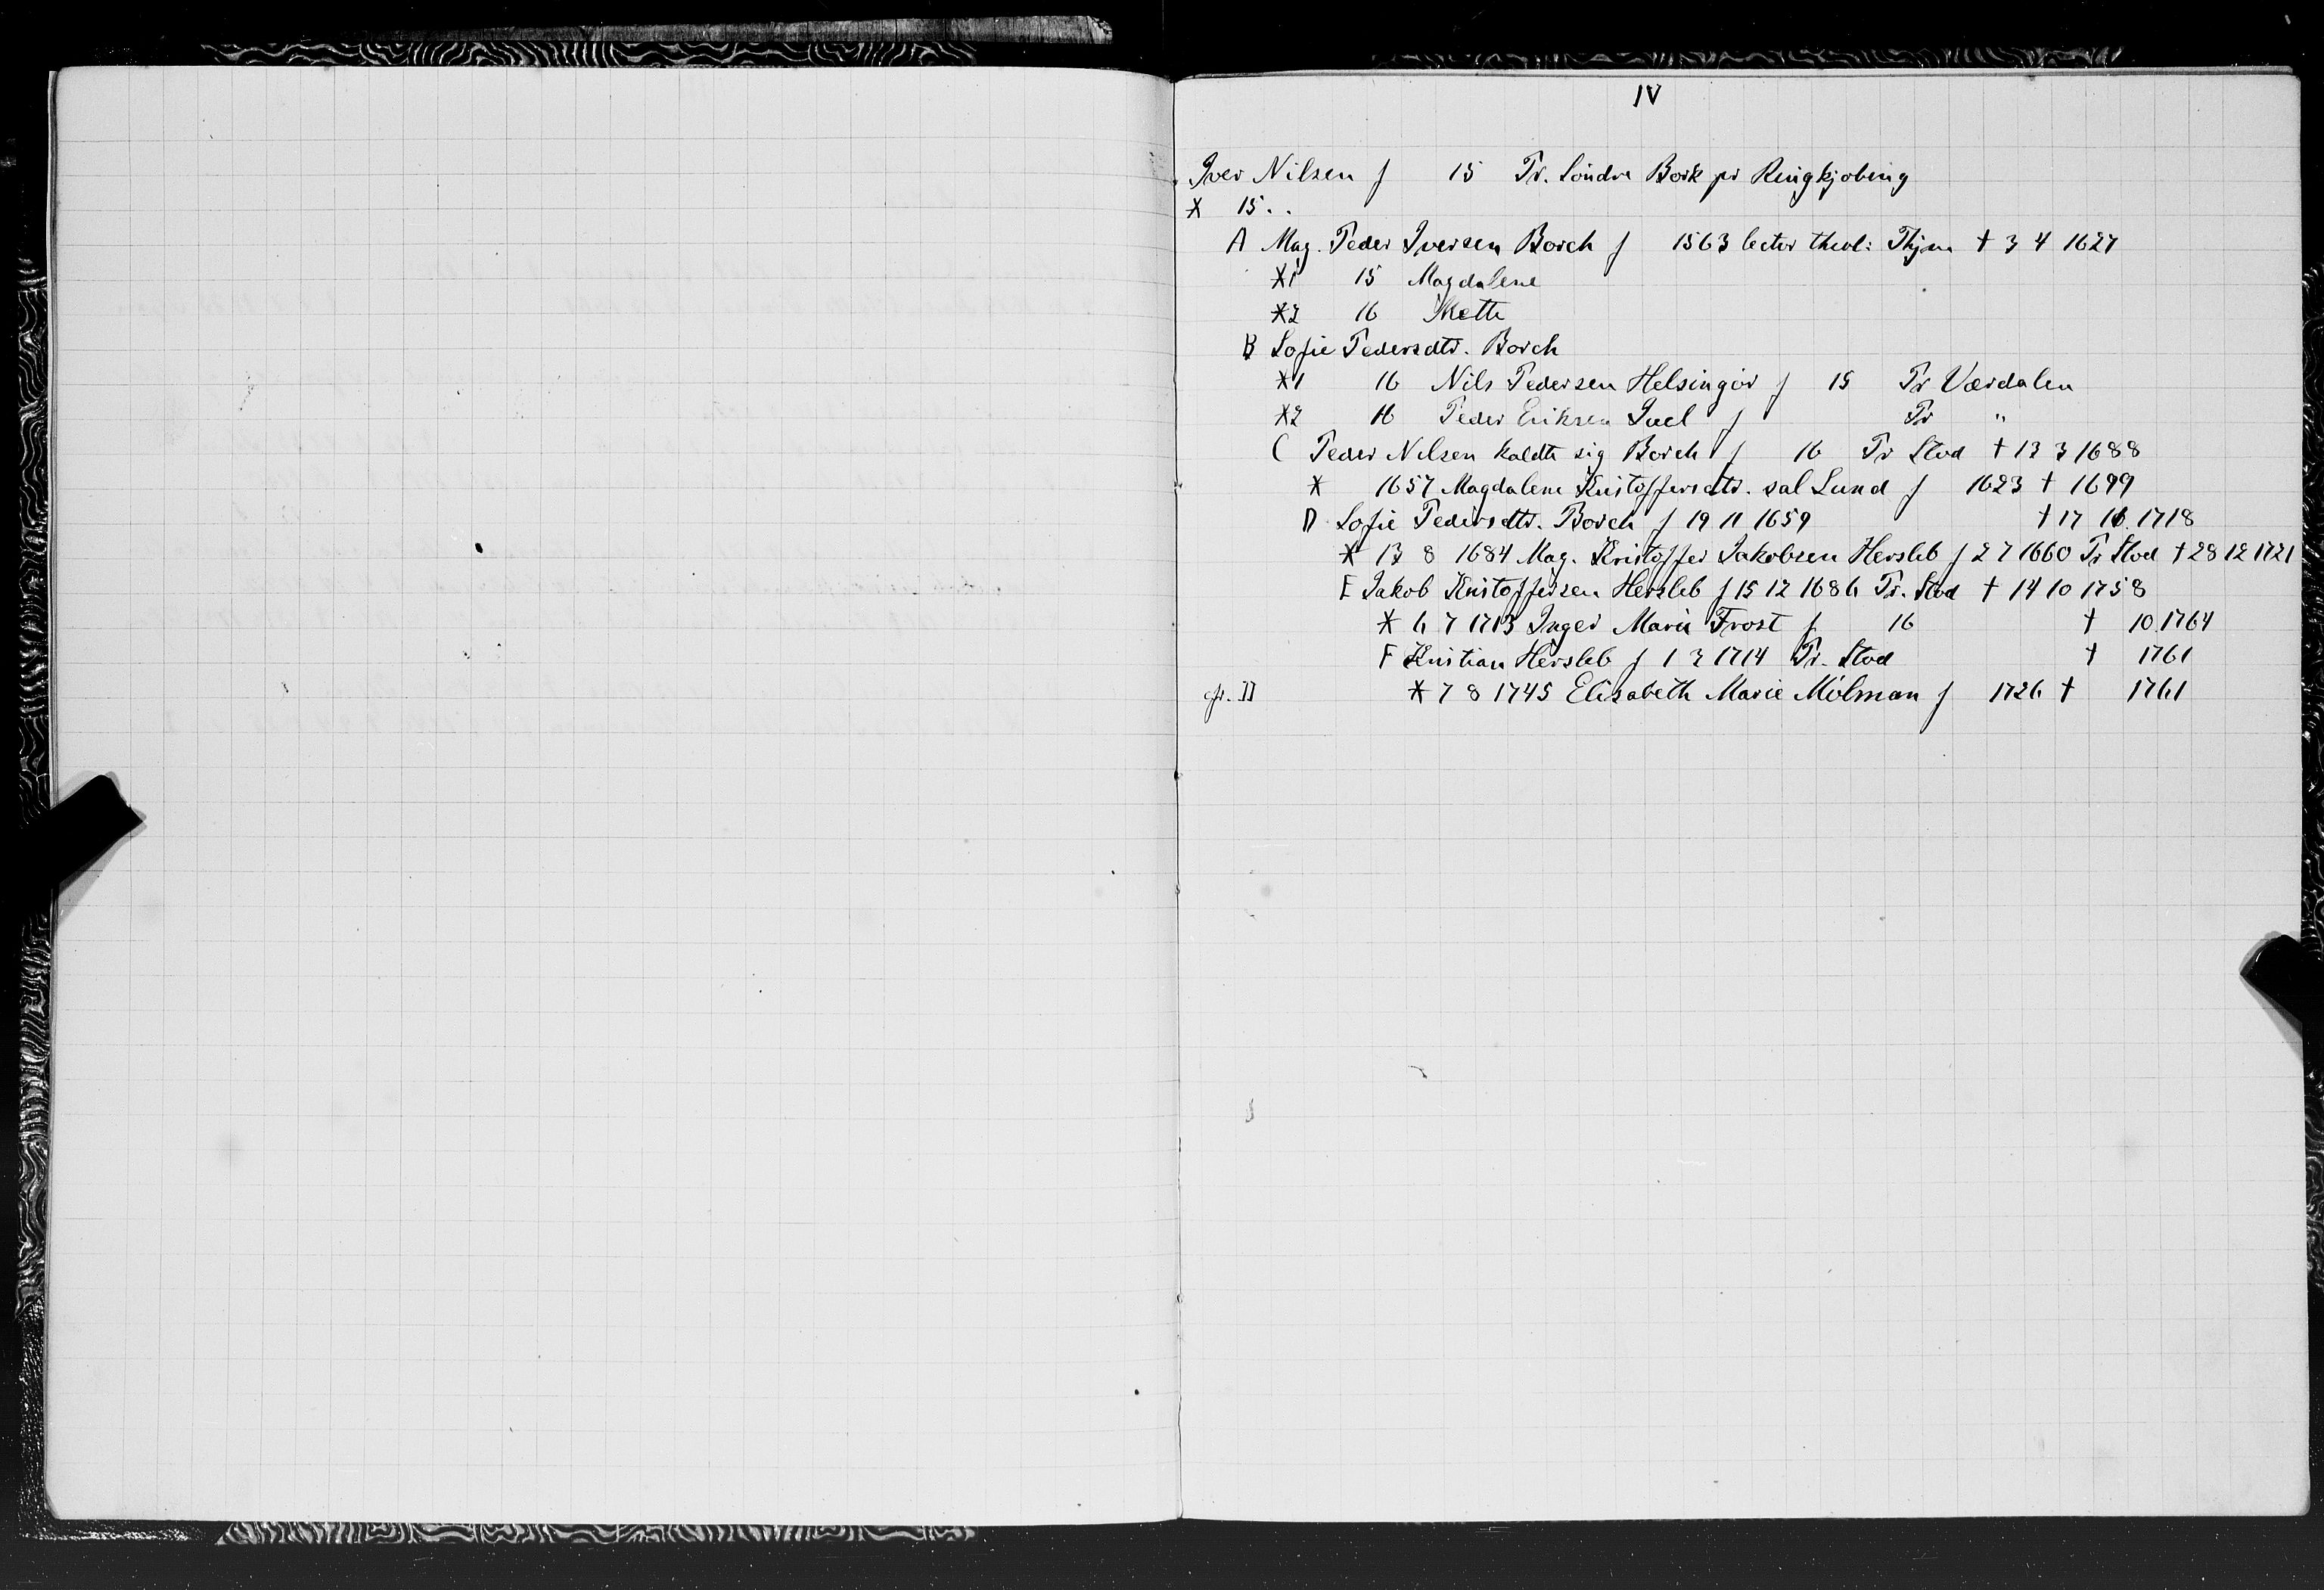 IV
Iver Nilsen f 15 Pr. Söndre Bork pr Ringkjobing
* 15..
A Mag. Peder Iversen Borch f 1563 lector theol: Thjem † 3 4 1627
*1 15 Magdalene
*2 16 Mette
B Sofie Pedersdtr. Borch
*1 16 Nils Pedersen Helsingör f 15 Pr Værdalen
*2 16 Peder Eriksen Juel f Pr "
C Peder Nilsen kaldte sig Borch f 16 Pr Stod † 13 3 1688
* 1657 Magdalene Kristoffersdtr. sal Lund f 1623 † 1699
D Sofie Pedersdtr. Borch f 19 11 1659 † 17 1718
* 13 8 1684 Mag. Kristoffer Jakobsen Hersleb f 2 7 1660 Pr Stod † 28 12 1721
E Jakob Kristoffersen Hersleb f 15 12 1686 Pr. Stod † 14 10 1758
* 6 7 1713 Inger Marie Frost f 16 † 10 1764
F Kristian Hersleb f 1 3 1714 Pr. Stod † 1761
cfr. II * 7 8 1745 Elisabeth Marie Mölman f 1726 † 1761